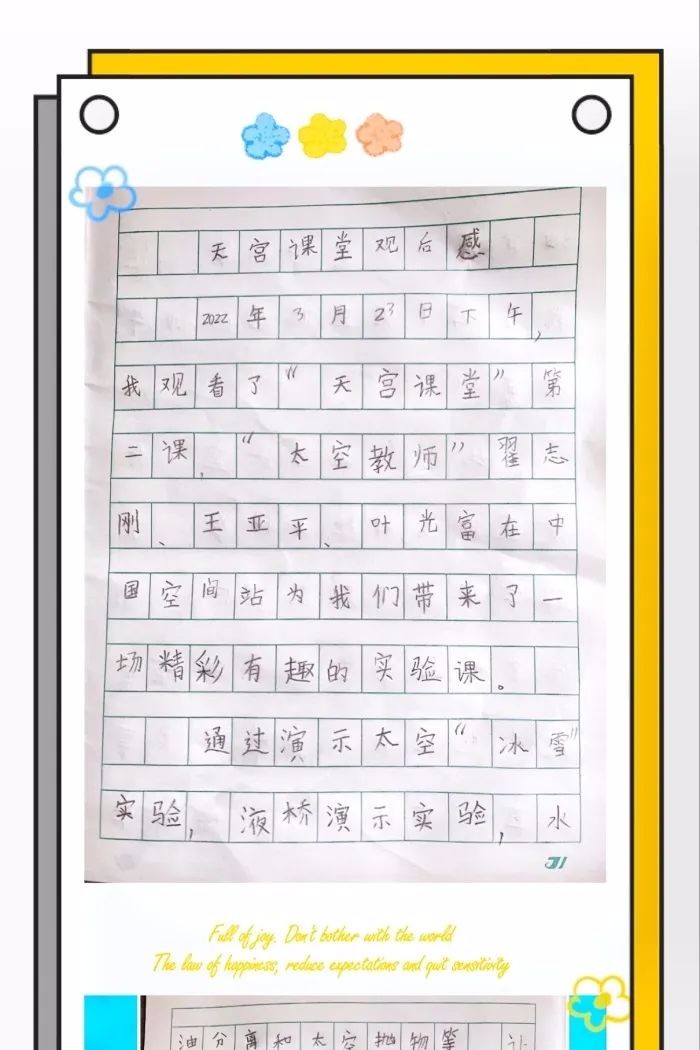 天宫课堂观后感
2022年3月23日下午,
我观看了“天宫课堂”第
二课,“太空教师”翟志
刚、王亚平、叶光富在中
国空间站为我们带来了一
场精彩有趣的实验课。
通过演示太空“冰雪”
实验,液桥演示实验,水
Full of joy. Don't bother with the world
The law of happiness, reduce expectations and quit sensitivity
油分离和太空抛物等